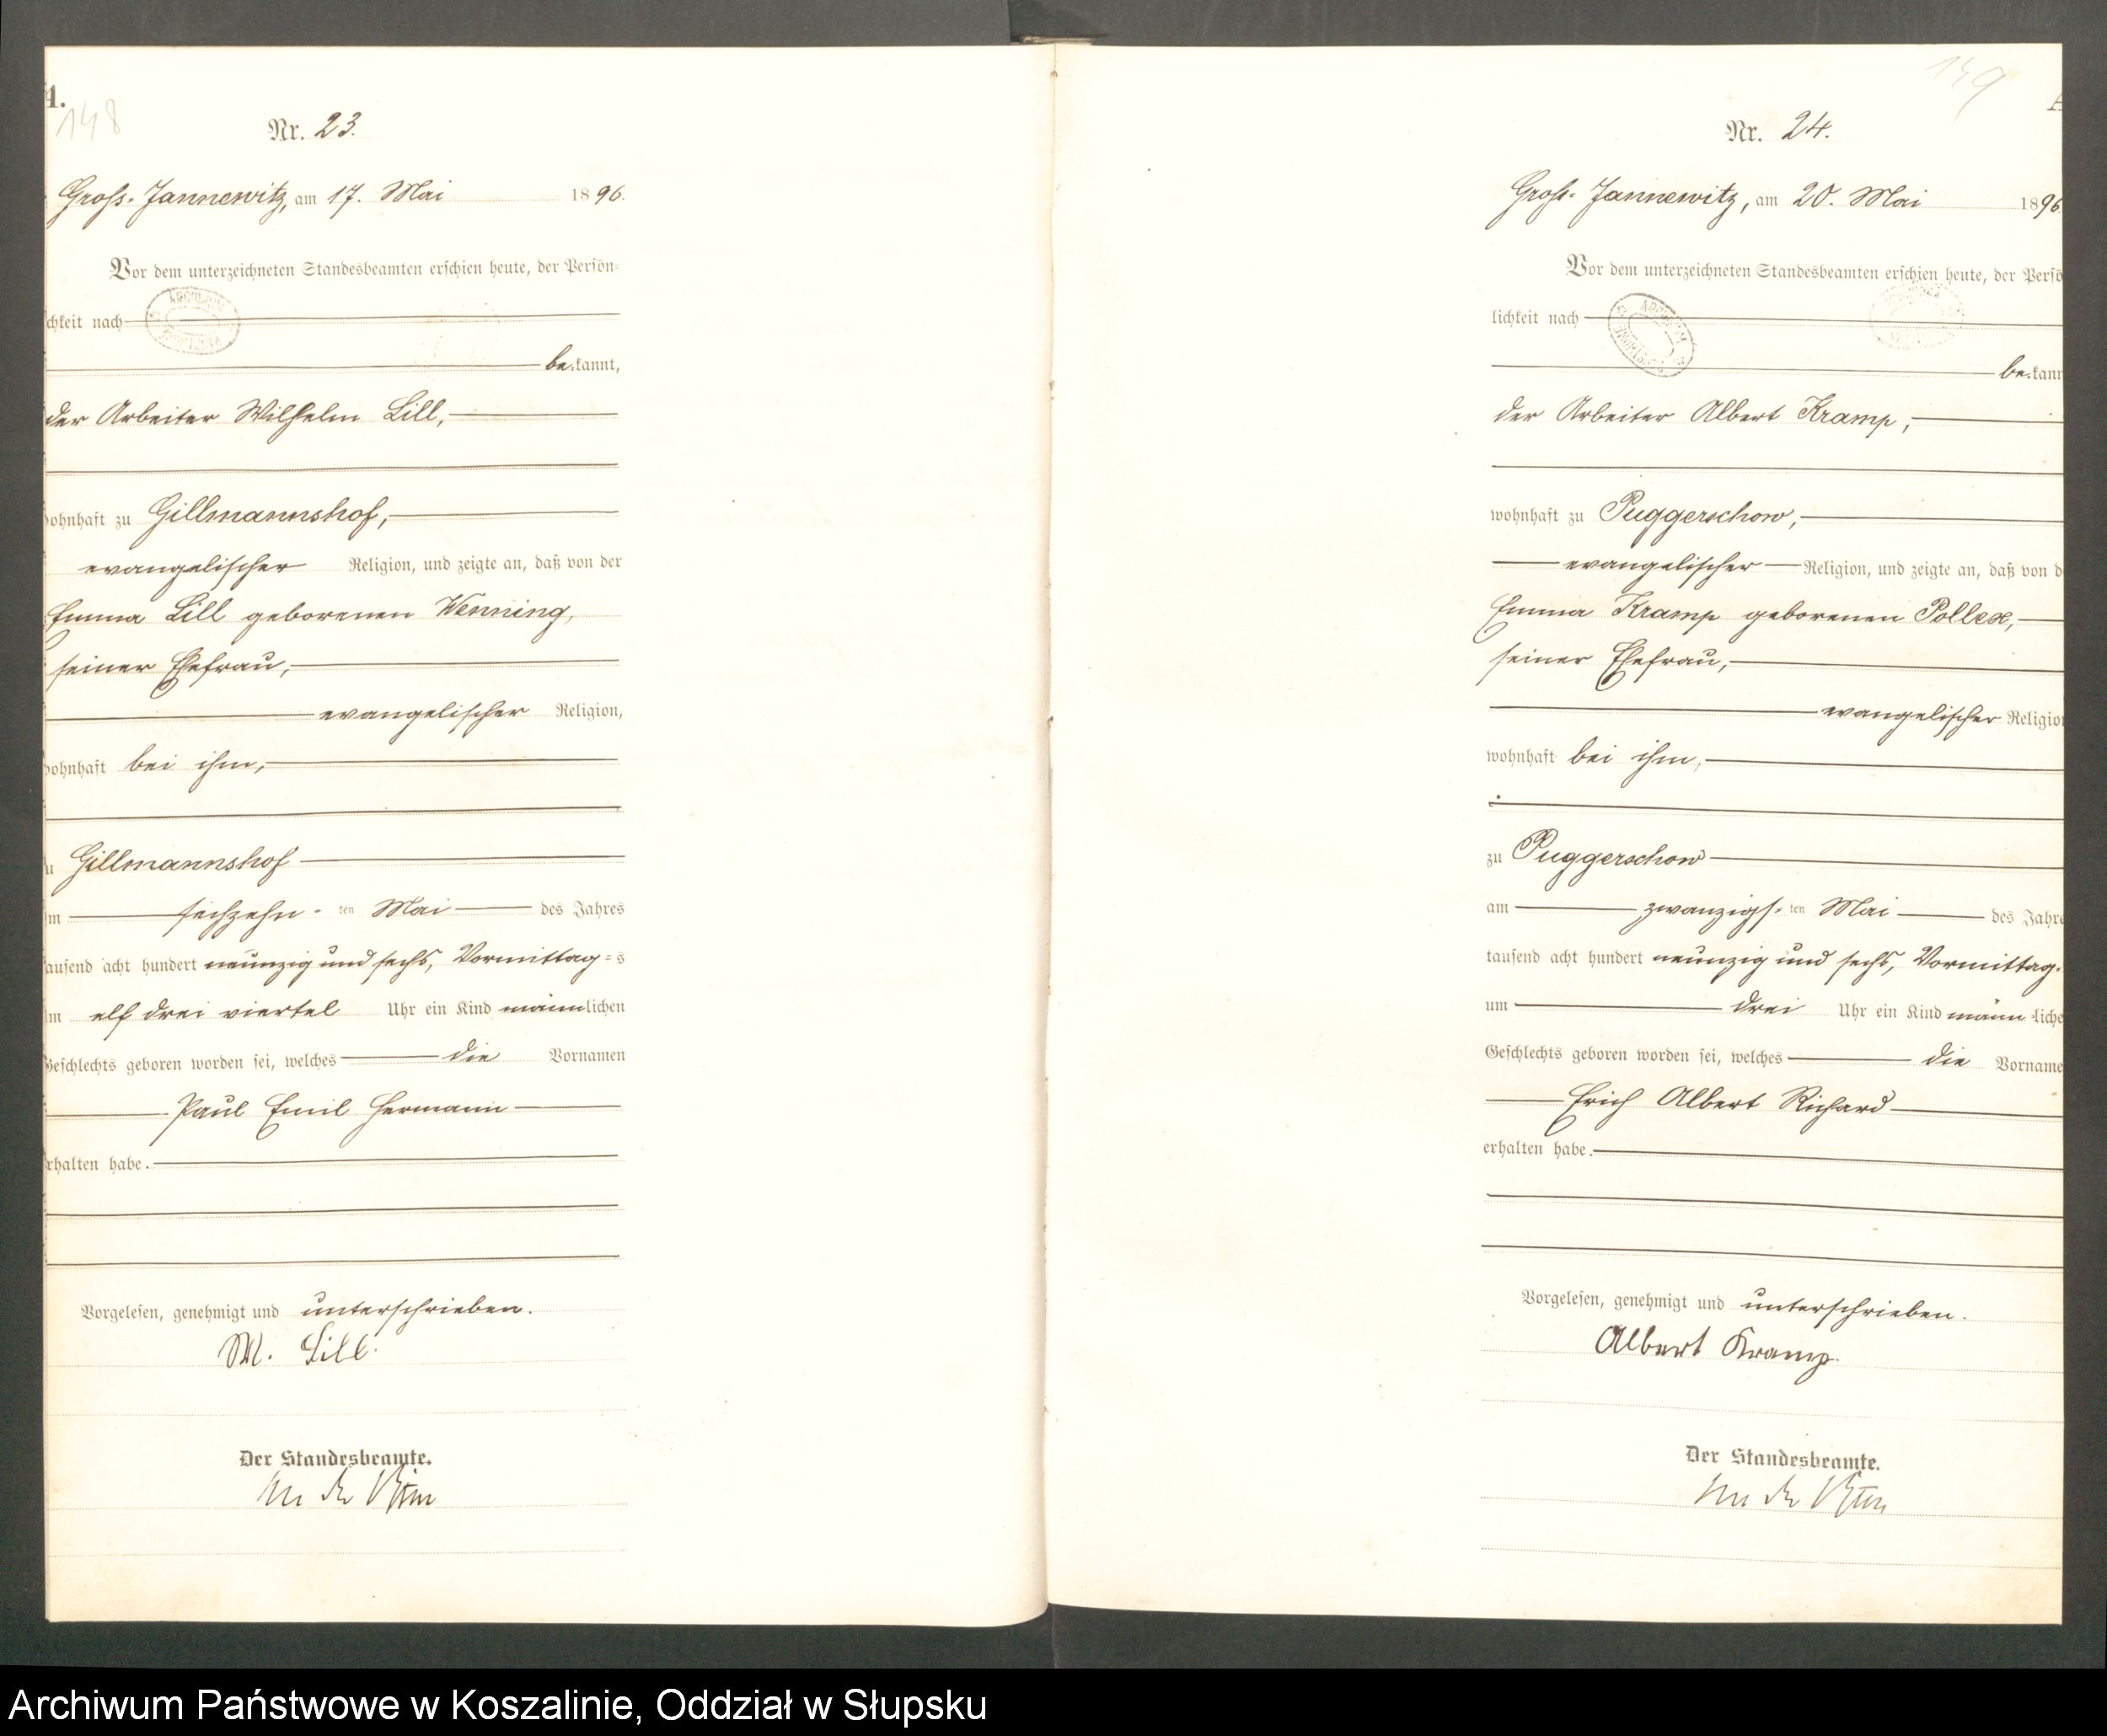 148
Nr. 23.
Groß-Jannewitz, am 17. Mai 1896.
Vor dem unterzeichneten Standesbeamten erschien heute, der Persön-
chkeit nach
be kannt,
der Arbeiter Wilhelm Lill,
ohnhaft zu Gillmannshof,
evangelischer Religion, und zeigte an, daß von der
Emma Lill geborenen Wenning,
seiner Ehefrau,
evangelischer Religion,
ohnhaft bei ihm,
u Gillmannshof
m sechzehn-ten Mai des Jahres
ausend acht hundert neunzig und sechs, Vormittag=s
m elf drei viertel Uhr ein Kind männlichen
Geschlechts geboren worden sei, welches die Vornamen
Paul Emil Hermann
rhalten habe.
Vorgelesen, genehmigt und unterschrieben.
W. Lill.
Der Standesbeamte.
149
Nr. 24.
Groß-Jannewitz, am 20. Mai 1896
Vor dem unterzeichneten Standesbeamten erschien heute, der Persö
lichkeit nach
be kann
der Arbeiter Albert Kramp,
wohnhaft zu Puggerschow,
evangelischer Religion, und zeigte an, daß von d
Emma Kramp geborenen Pollex,
seiner Ehefrau,
evangelischer Religio
wohnhaft bei ihm,
zu Puggerschow
am zwanzigs-ten Mai des Jahre
tausend acht hundert neunzig und sechs, Vormittag-
um drei Uhr ein Kind männ-liche
Geschlechts geboren worden sei, welches die Vorname
Erich Albert Richard
erhalten habe.
Vorgelesen, genehmigt und unterschrieben.
Albert Kramp.
Der Standesbeamte.
Archiwum Państwowe w Koszalinie, Oddział w Słupsku